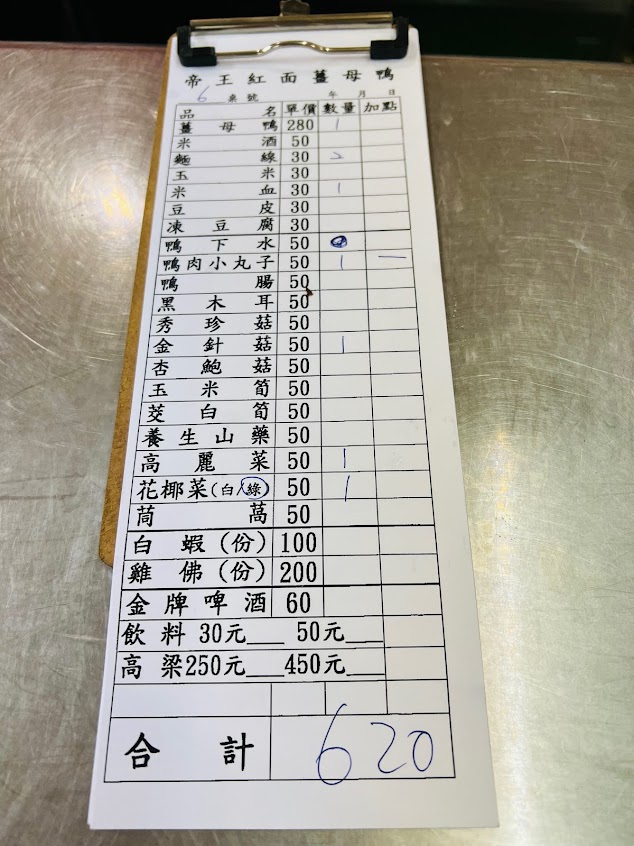 帝王紅面薑母鴨
6 桌號 年 月 日
品名 單價 數量 加點
薑母鴨 280 1
米酒 50
麵線 30 2
玉米 30
米血 30 1
豆皮 30
凍豆腐 30
鴨下水 50
鴨肉小丸子 50 1 一
鴨腸 50
黑木耳 50
秀珍菇 50
金針菇 50 1
杏鮑菇 50
玉米筍 50
茭白筍 50
養生山藥 50
高麗菜 50 1
花椰菜(白/綠) 50 1
茼萵 50
白蝦(份) 100
雞佛(份) 200
金牌啤酒 60
飲料 30元___ 50元___
高梁250元___450元___
合計 620